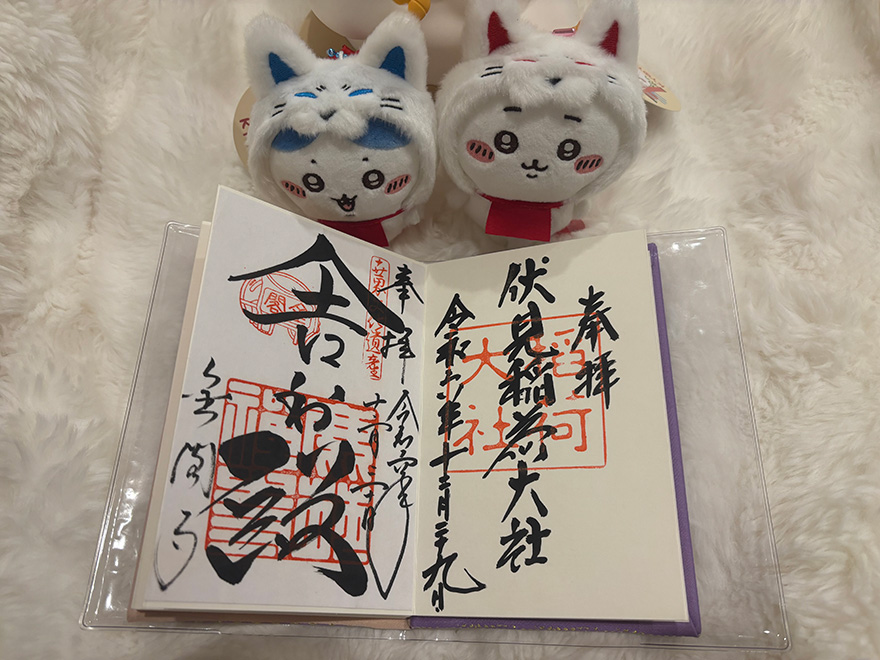 奉拝
稲荷大社
伏見稲荷大社
令和六年十二月二十九日
奉拝
令和六年
十二月
舎利殿
金閣寺